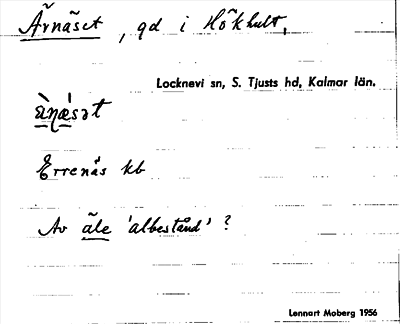 Ärnäset, gd i Hökhult,
Locknevi sn, S. Tjusts hd, Kalmar län.
Errenäs kb
Av äle 'albestånd' ?
Lennart Moberg 1956